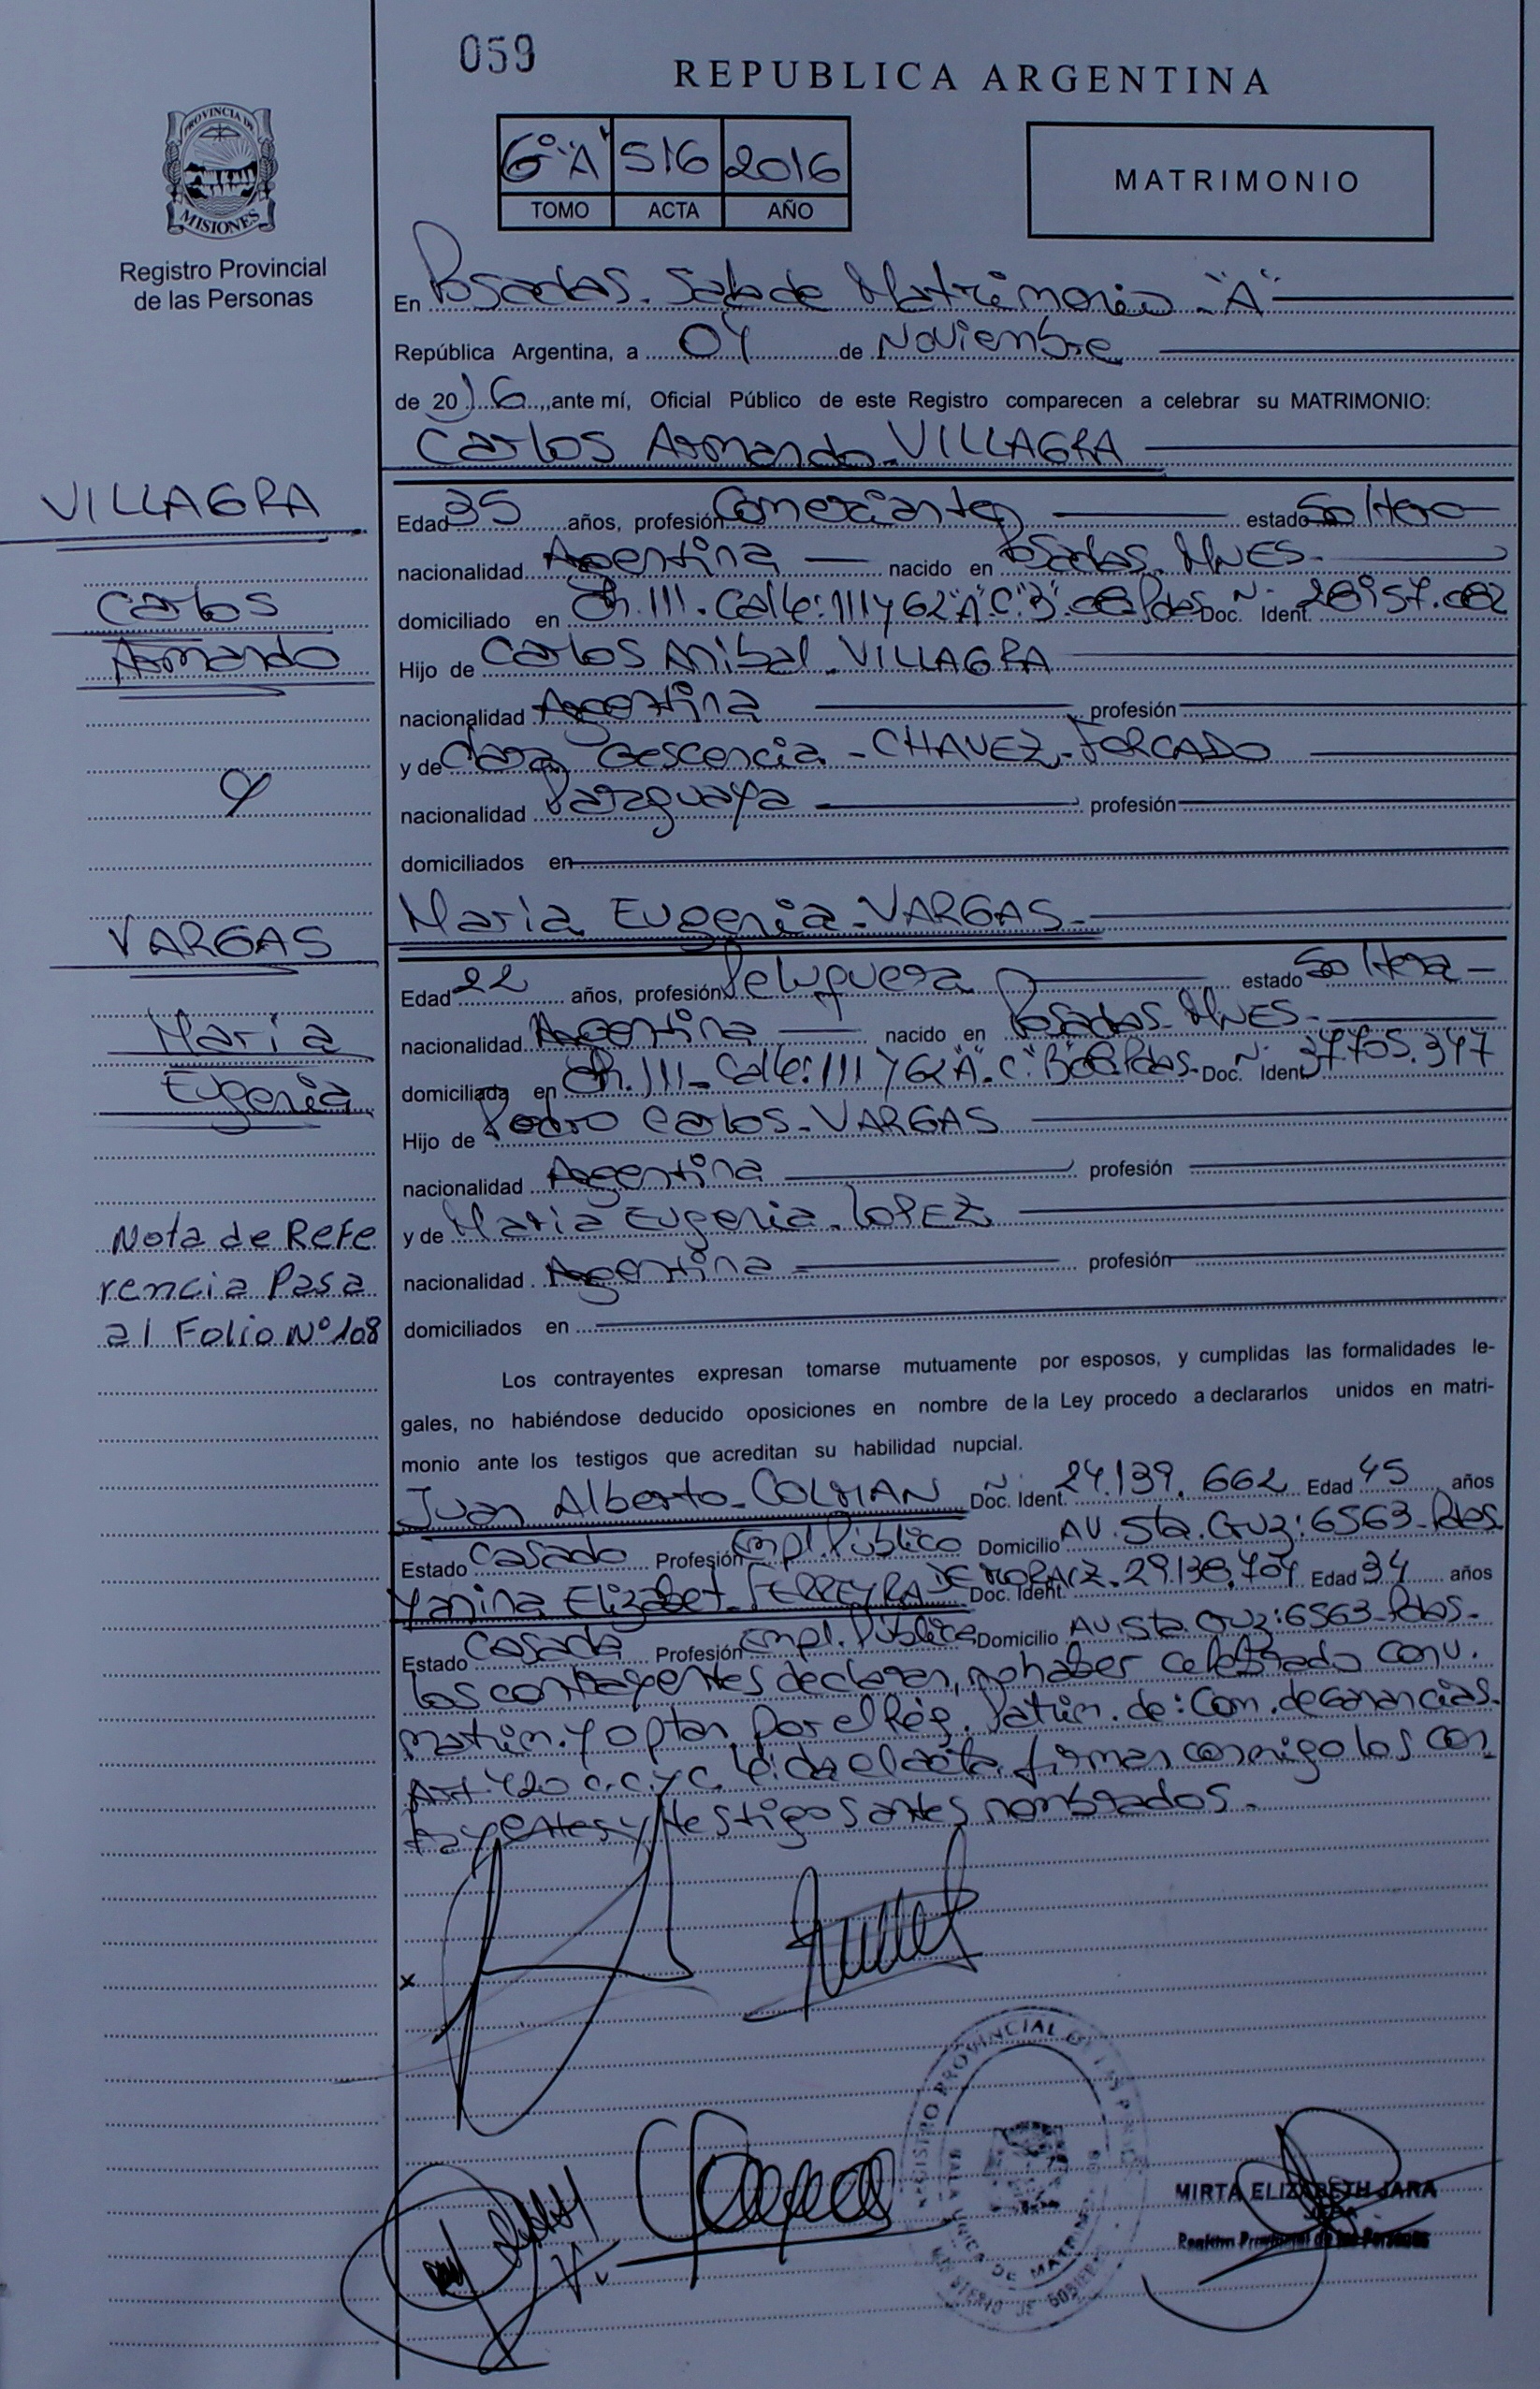 059
REPUBLICA ARGENTINA
PROVINCIA DE
MISIONES
Registro Provincial
de las Personas
6º "A" 516 2016
TOMO ACTA AÑO
MATRIMONIO
En Posadas. Sala de Matrimonio "A"
República Argentina, a 04 de Noviembre
de 2016, ante mí, Oficial Público de este Registro comparecen a celebrar su MATRIMONIO:
Carlos Armando VILLAGRA
VILLAGRA
Carlos
Armando
Edad 35 años, profesión Comerciante estado Soltero
nacionalidad Argentina nacido en Posadas. MNES.
domiciliado en Ch. 111. Calle: 111 y 62 "A". C. "B". Pdas Doc. Ident. Nº 28957.082
Hijo de Carlos Anibal VILLAGRA
nacionalidad Argentina profesión
y de Crescencia - CHAVEZ FORCADO
nacionalidad Paraguaya profesión
domiciliados en
y
María Eugenia VARGAS
VARGAS
María
Eugenia
Edad 22 años, profesión Peluquera estado Soltera
nacionalidad Argentina nacido en Posadas MNES.
domiciliada en Ch. 111 - Calle: 111 y 62 "A". C. "B" Pdas. Doc. Ident. Nº 37705.347
Hijo de Pedro Carlos VARGAS
nacionalidad Argentina profesión
y de María Eugenia LOPEZ
nacionalidad Argentina profesión
domiciliados en
Nota de Refe
rencia Pasa
al Folio Nº 108
Los contrayentes expresan tomarse mutuamente por esposos, y cumplidas las formalidades le-
gales, no habiéndose deducido oposiciones en nombre de la Ley procedo a declararlos unidos en matri-
monio ante los testigos que acreditan su habilidad nupcial.
Juan Alberto COLMAN Doc. Ident. Nº 24.139.662 Edad 45 años
Estado Casado Profesión Empl. Público Domicilio AV. Sta. Cruz: 6563 Pdas.
Yanina Elizabet FERREYRA DE MORAIZ Doc. Ident. 29.138.704 Edad 34 años
Estado Casada Profesión Empl. Público Domicilio AV. Sta. Cruz: 6563 Pdas.
los contrayentes declaran, no haber celebrado conv.
matrim. y optan por el Rég. Patrim. de: Com. de Ganancias.
Art 420 C.C. y C. leida el acta, firman conmigo los con
trayentes y testigos antes nombrados.
REGISTRO PROVINCIAL DE LAS PERSONAS
SALA UNICA DE MATRIMONIOS
MINISTERIO DE GOBIERNO
MIRTA ELIZABETH JARA
JEFA
Registro Provincial de las Personas